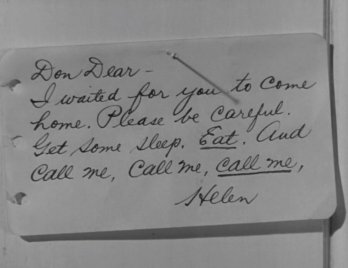 Don Dear -
I waited for you to come
home. Please be careful.
Get some sleep. Eat. And
call me, Call me, call me,
Helen